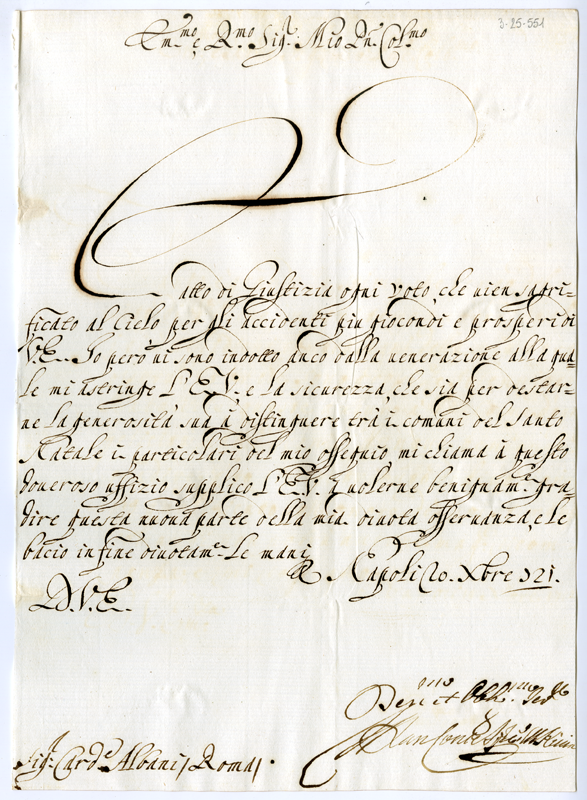 3-25-551
Em.mo e R.mo Sig.r Mio Pn̄. Col.mo
È atto di Giustizia ogni voto, che vien sagri-
ficato al Cielo per gli accidenti piu giocondi e prosperi di
V.E. Io però vi sono indotto anco dalla venerazione alla qua-
le mi astringe l'E.V. e la sicurezza, che sia per destar-
ne la generosità sua à distinguere trà i comuni del Santo
Natale i particolari del mio ossequio mi chiama à questo
doveroso uffizio supplico l'E.V. volerne benignam.e gra-
dire questa nuova parte della mia divota osservanza, e le
bacio in fine divotam.e le mani
Napoli 20. Xbre 721.
D.V.E.
Sig.r Card.e Albani / Roma /